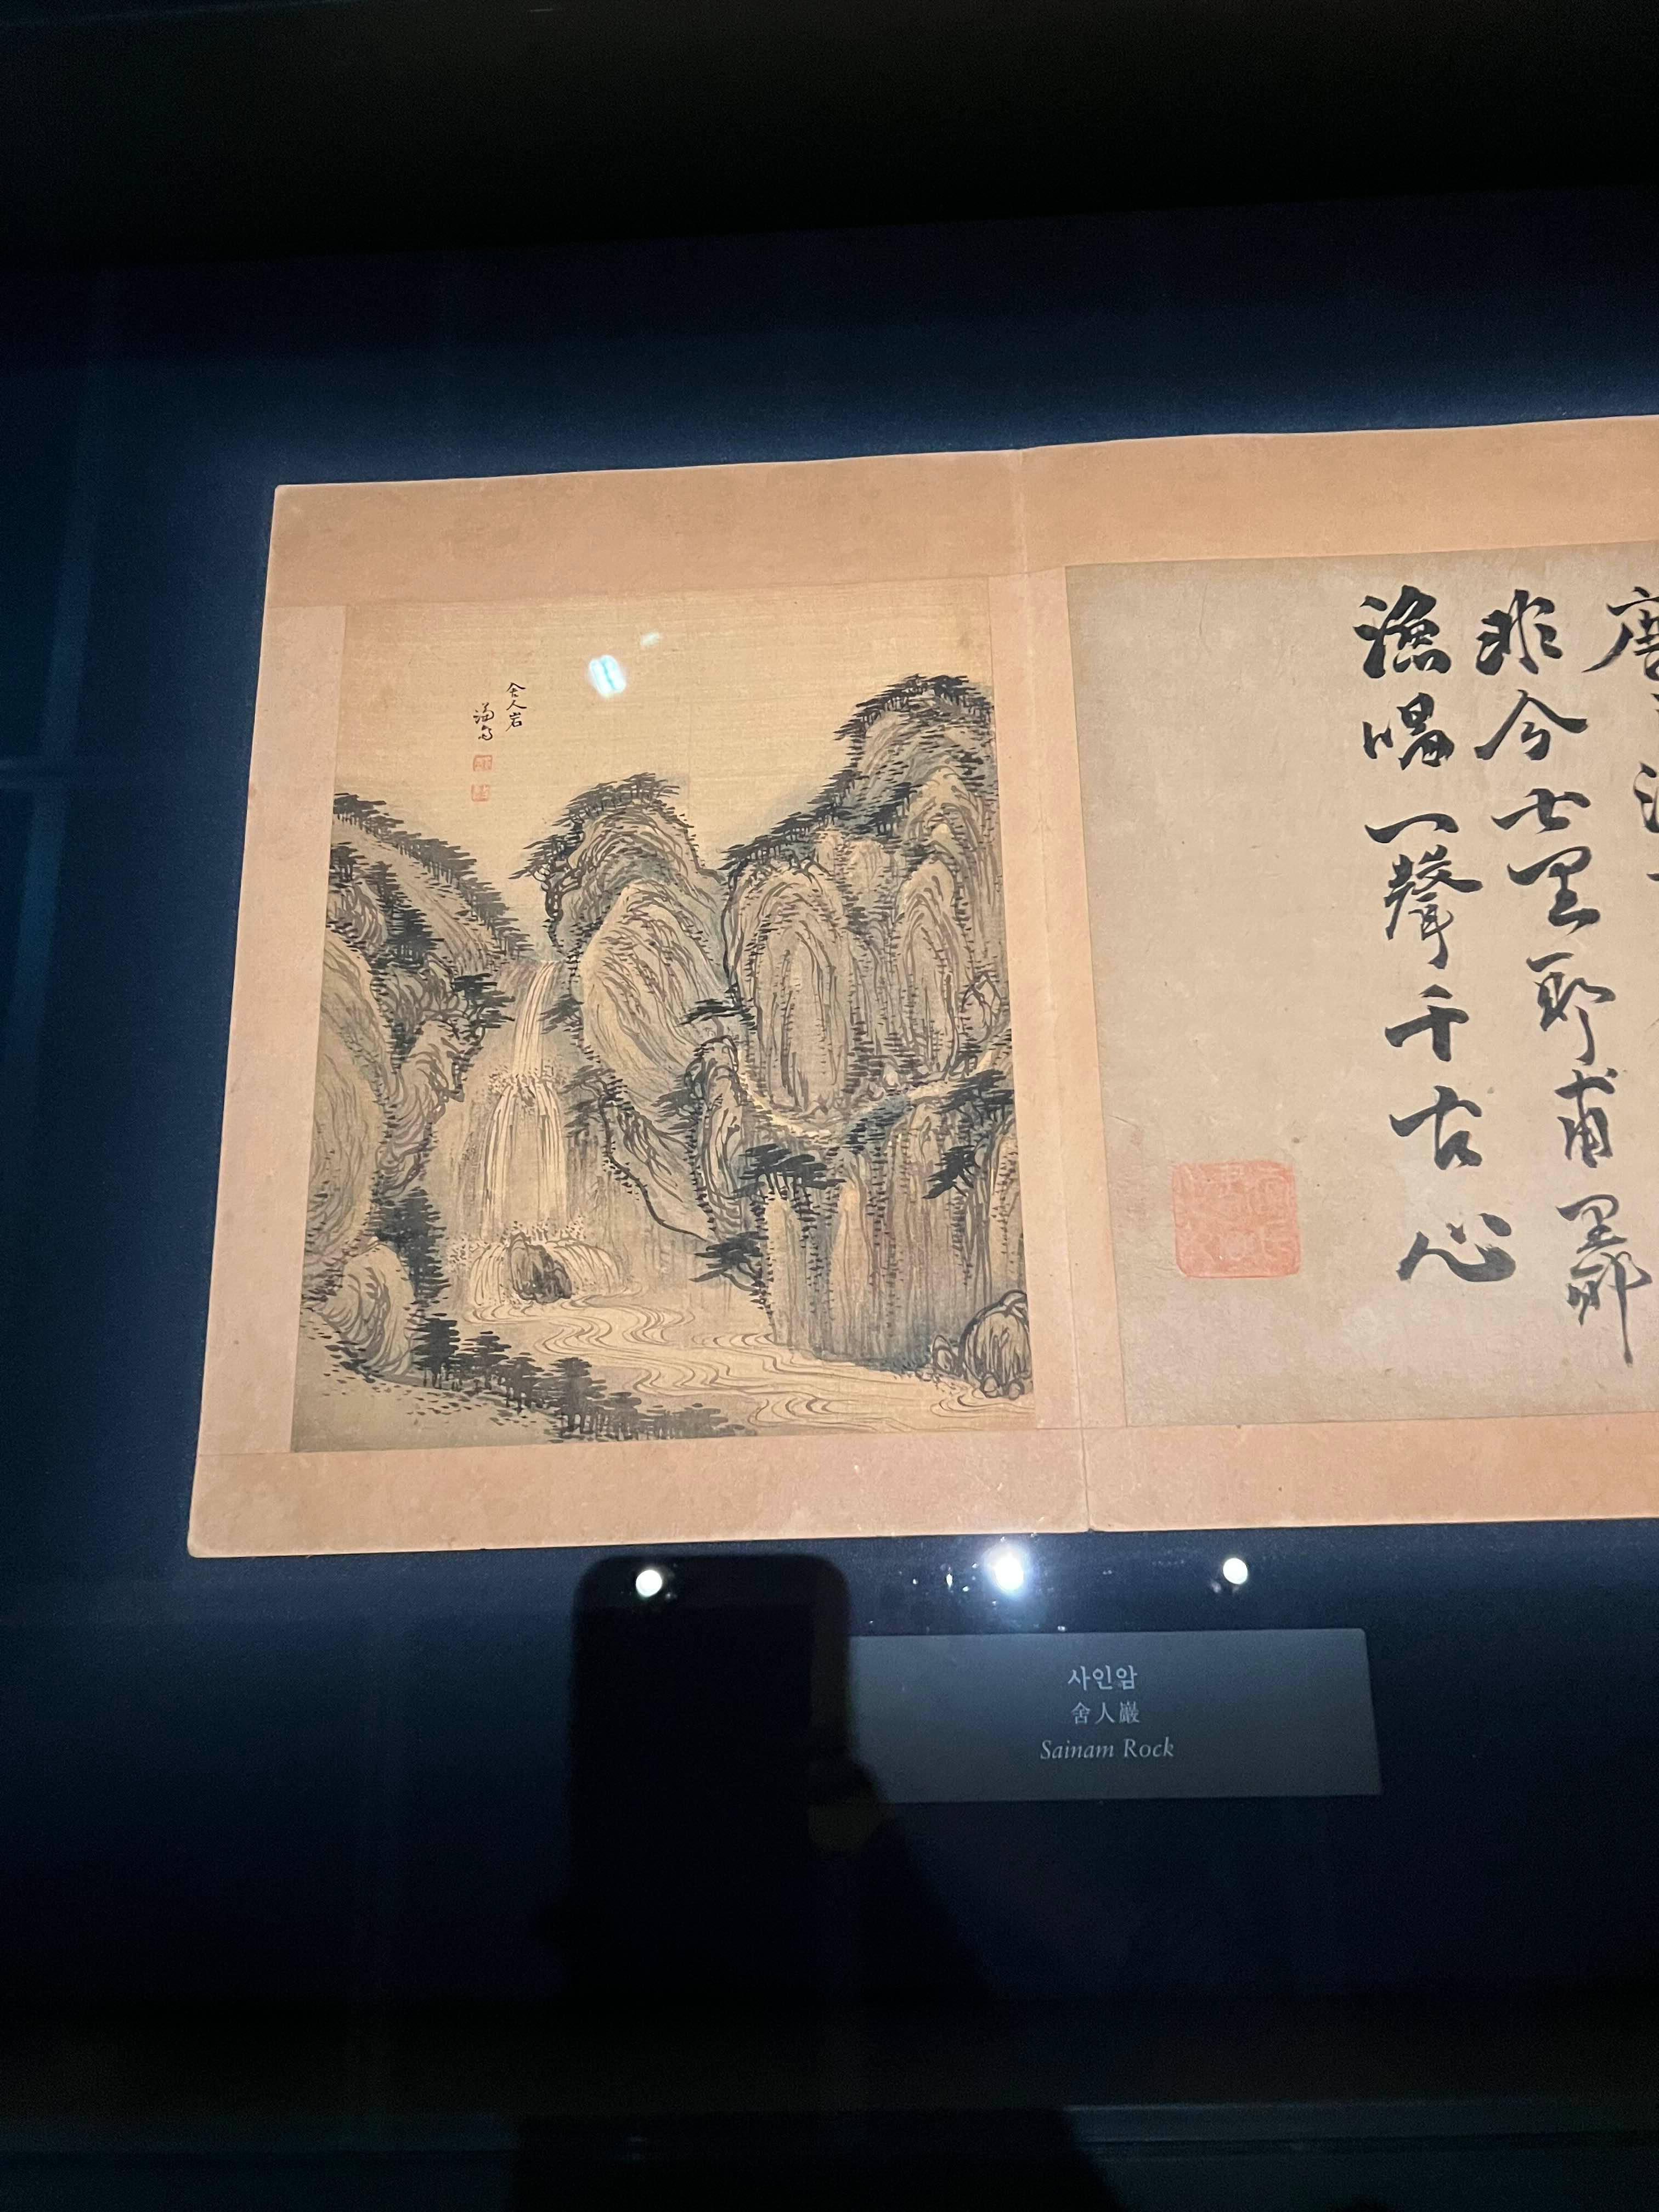 舍人岩
謙齋
非今七里耶甫里耶
漁唱一聲千古心
사인암
舍人巖
Sainam Rock